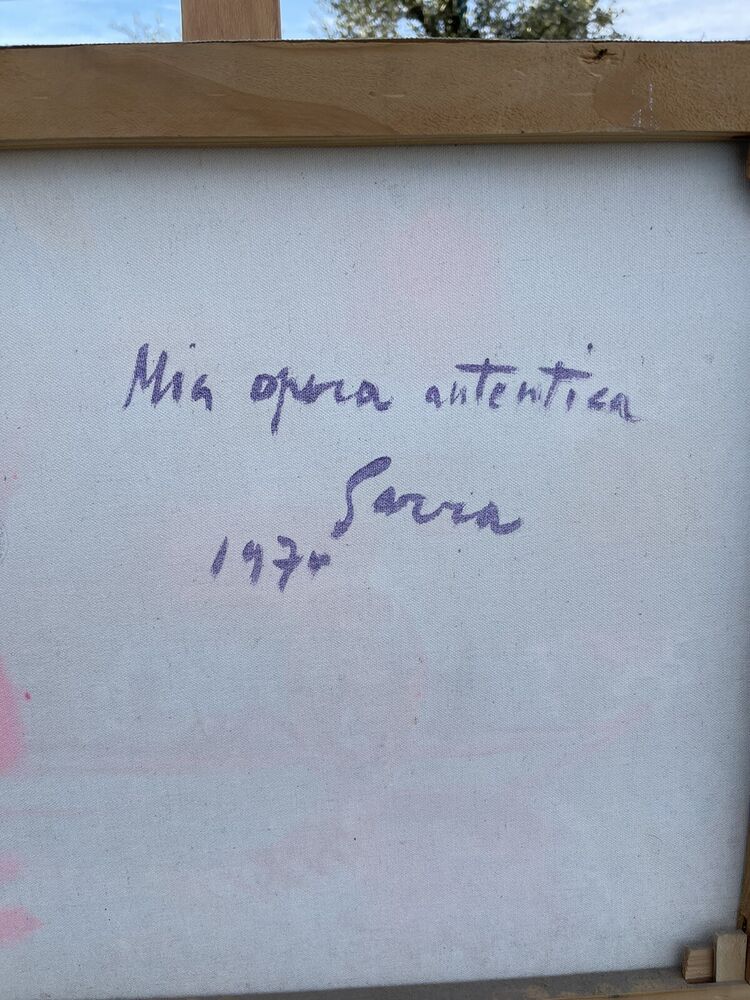 Mia opera autentica
Sarra
1970